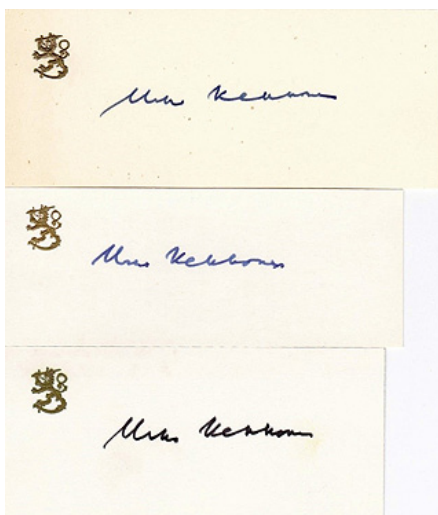 Urho Kekkonen
Urho Kekkonen
Urho Kekkonen